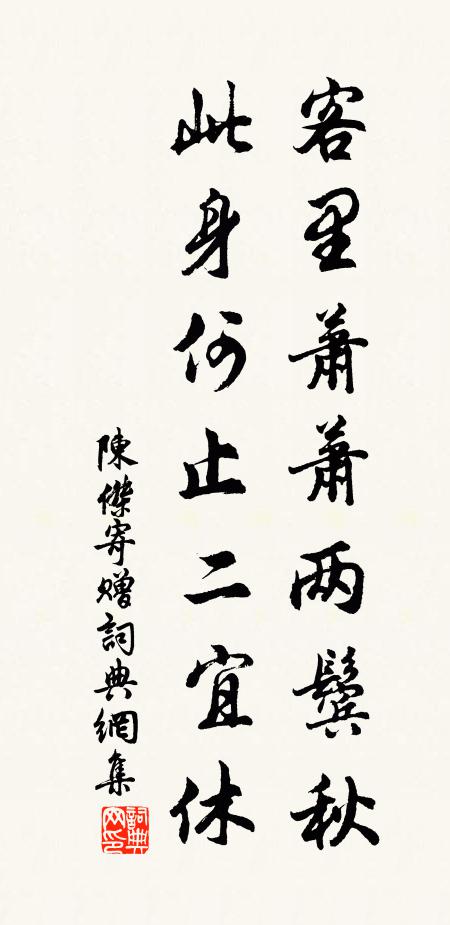 客里蕭蕭两鬢秋
此身何止二宜休
陳傑寄贈詞典網集
詞典網印